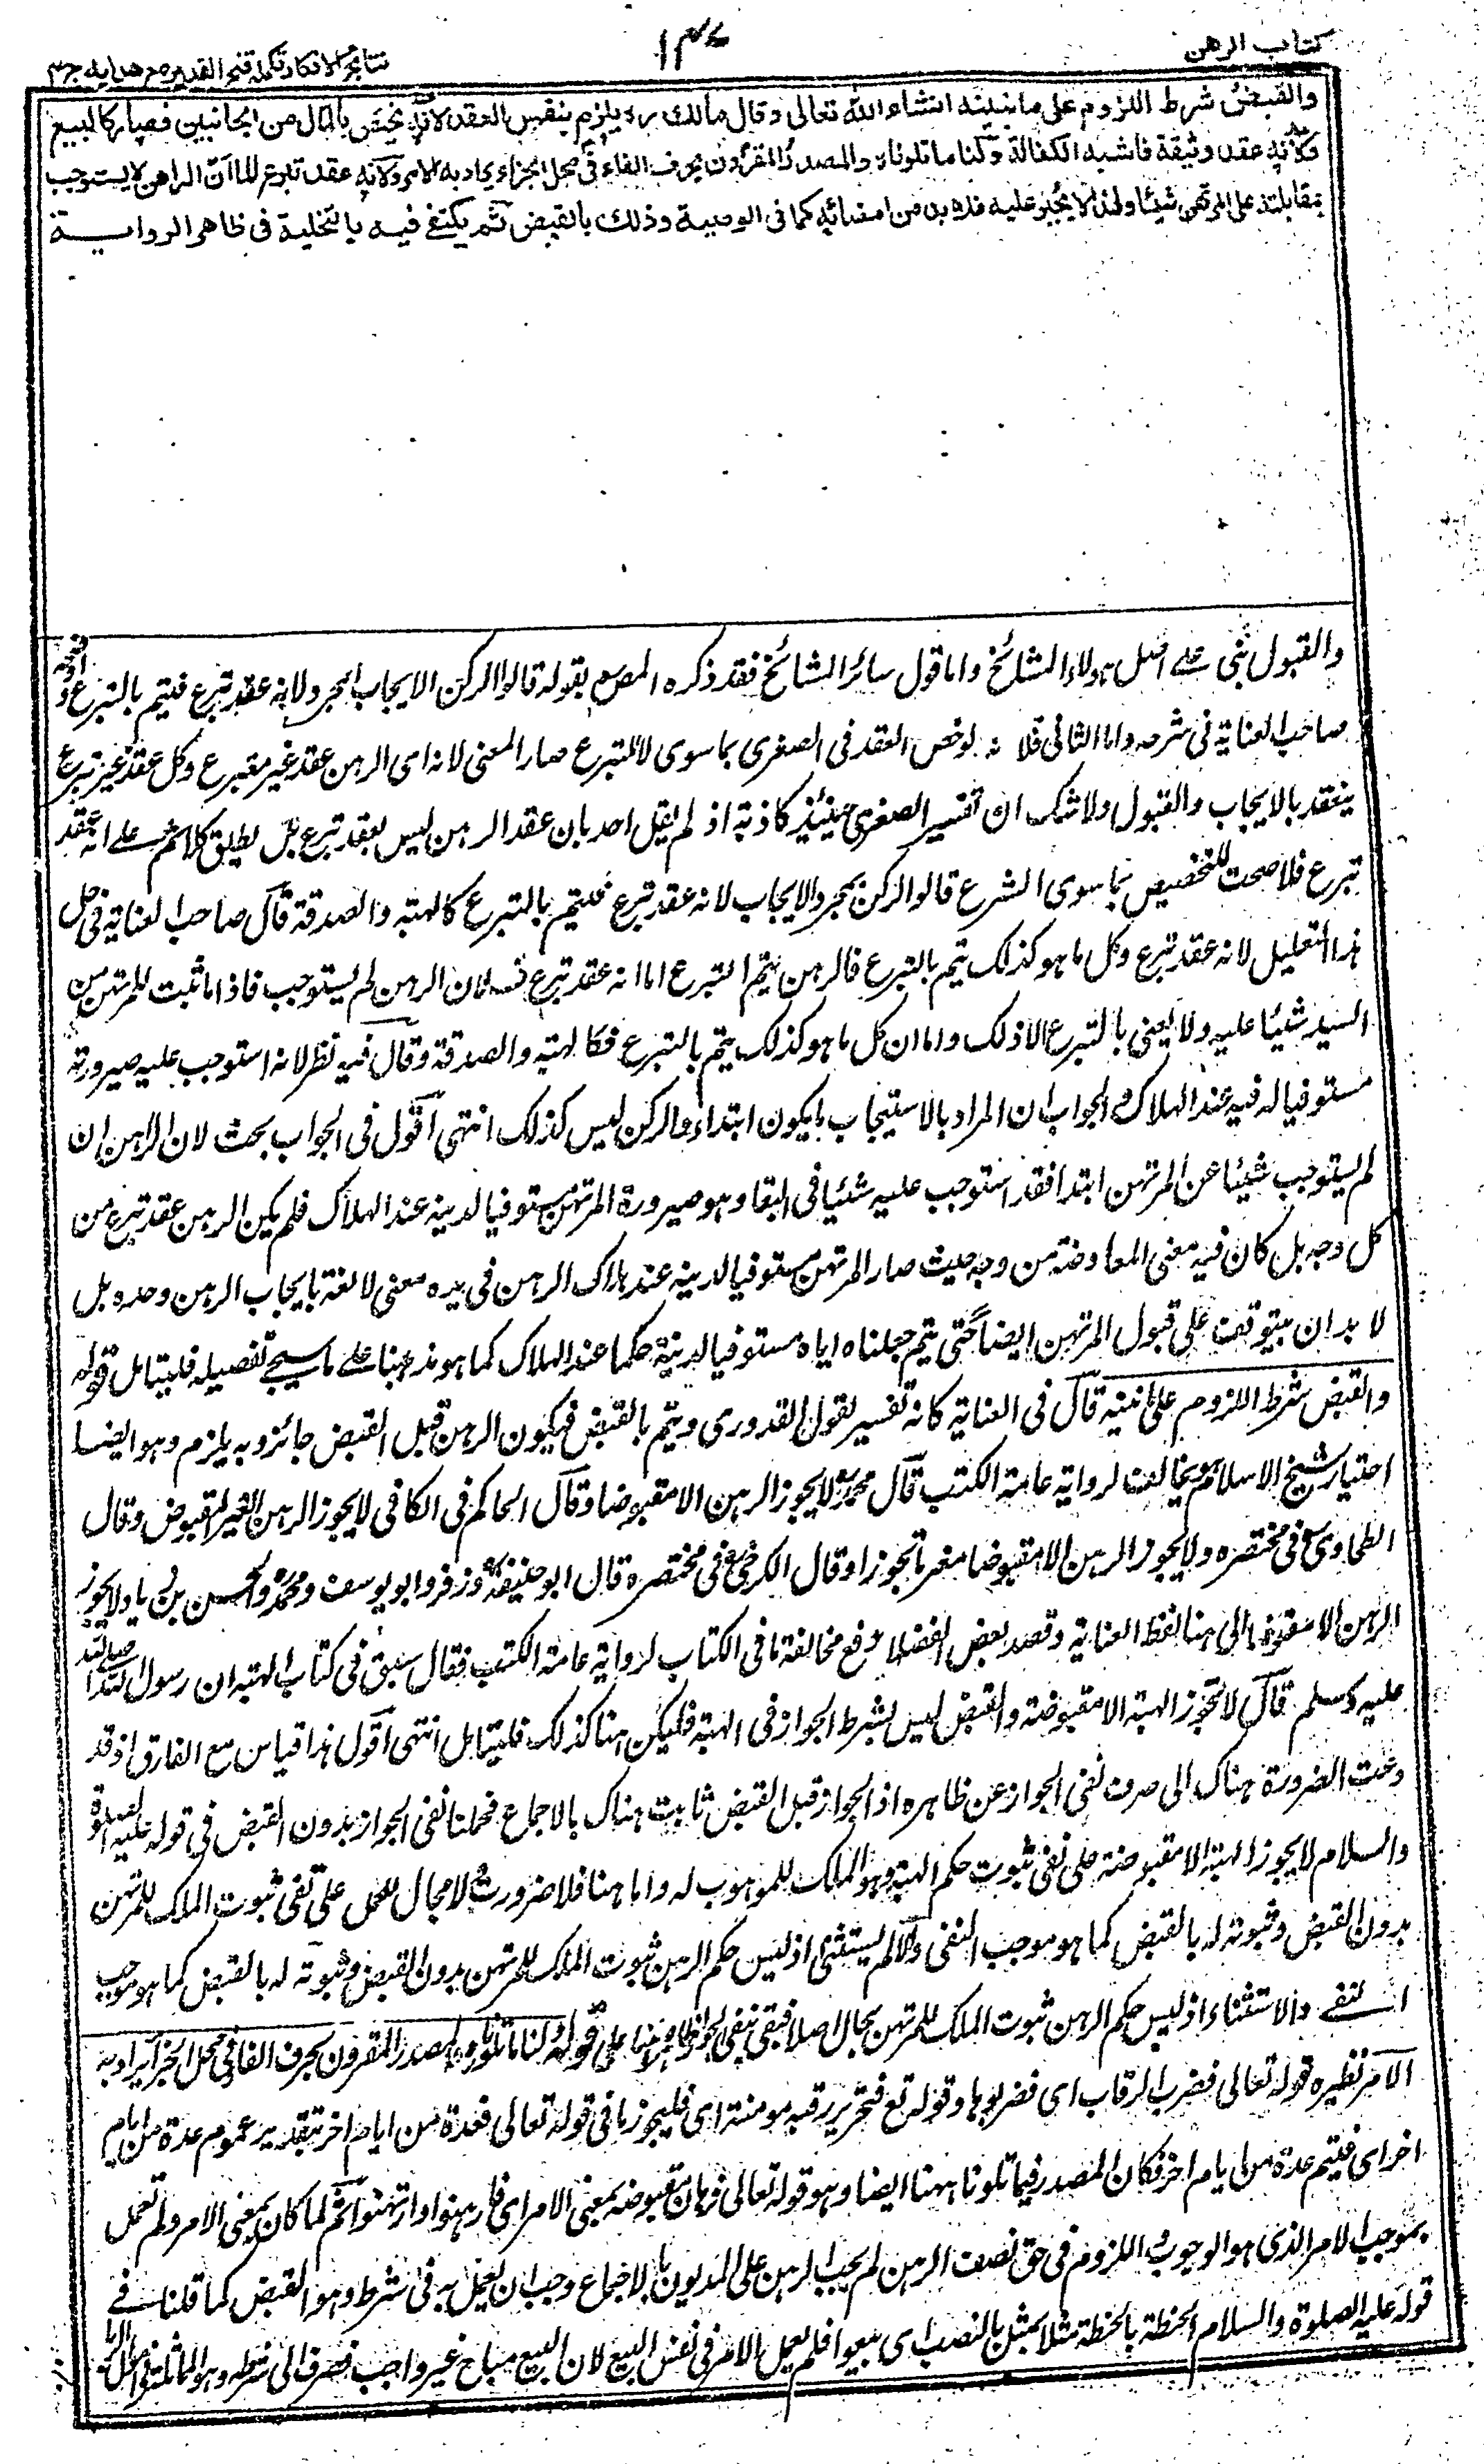 كتاب الرهن
١٣٧
نتائج الافكار تكمله فتح القدير مع هدايه ج٣
والقبض شرط اللزوم على ما نبينه انشاء الله تعالى وقال مالك رہ يلزم بنفس العقد لانه يختص بالمال من الجانبين فصار كالبيع
ولانه عقد وثيقة فاشبه الكفالة ولنا ما تلوناه والمصدر المقرون بحرف الفاء فى محل الجزاء يراد به الامر ولانه عقد تبرع لما ان الراهن لا يستوجب
بمقابلته على المرتهن شيئا ولهذا لا يجبر عليه فلا بد من امضائه كما فى الوصية وذلك بالقبض ثم يكتفى فيه بالتخلية فى ظاهر الرواية
والقبول بنى على اصل هولاء المشائخ واما قول سائر المشائخ فقد ذكره المص بقوله قالوا الركن الايجاب المجرد لانه عقد تبرع فيتم بالتبرع
صاحب العناية فى شرحه واما الثانى فلانه لو خص العقد فى الصغرى بما سوى التبرع صار المعنى لانه اى الرهن عقد غير تبرع وكل عقد غير تبرع
ينعقد بالايجاب والقبول ولا شك ان تفسير الصغرى حينئذ كاذبة اذ لم يقل احد بان عقد الرهن ليس بعقد تبرع بل يطلق كلامهم على انه عقد
تبرع فلا صحت للتخصيص بما سوى الشرع قالوا الركن بمجرد الايجاب لانه عقد تبرع فيتم بالتبرع كالهبة والصدقة قال صاحب العناية فى حل
هذا التعليل لانه عقد تبرع وكل ما هو كذلك يتم بالتبرع فالرهن يتم بالتبرع اما انه عقد تبرع فلان الرهن لم يستوجب فاذا ما ثبت للمرتهن من
اليد شيئا عليه ولا يعنى بالتبرع الا ذلك واما ان كل ما هو كذلك يتم بالتبرع فكالهبة والصدقة وقال فيه نظر لانه استوجب عليه صيرورته
مستوفيا له فيه عند الهلاك والجواب ان المراد بالاستيجاب ما يكون ابتداء والركن ليس كذلك انتهى اقول فى الجواب بحث لان الراهن ان
لم يستوجب شيئا عن المرتهن ابتدا فقد استوجب عليه شيئا فى البقا وهو صيرورة المرتهن مستوفيا لدينه عند الهلاك فلم يكن الرهن عقد تبرع من
كل وجه بل كان فيه معنى المعاوضة من وجه حيث صار المرتهن مستوفيا لدينه عند هلاك الرهن فى يده معنى لا لغة بايجاب الرهن وحده بل
لا بد ان يتوقف على قبول المرتهن ايضا حتى يتم جعلناه اياه مستوفيا لدينه حكما عند الهلاك كما هو مذهبنا على ما سيجئ تفصيله فليتامل قوله
والقبض شرط اللزوم على ما نبينه قال فى العناية كانه تفسير لقول القدورى ويتم بالقبض فيكون الرهن قبل القبض جائز وبه يلزم وهو ايضا
اختيار شيخ الاسلام وهو يخالف لرواية عامة الكتب قال محمد لا يجوز الرهن الا مقبوضا وقال الحاكم فى الكافى لا يجوز الرهن الغير المقبوض وقال
الطحاوى فى مختصره ولا يجوز الرهن الا مقبوضا مفرغا محوزا وقال الكرخى فى مختصره قال ابو حنيفة وزفر وابو يوسف ومحمد والحسن بن زياد لا يجوز
الرهن الا مقبوضا الى هنا لفظ العناية وقصد بعض الفضلا دفع مخالفة ما فى الكتاب لرواية عامة الكتب فقال سبق فى كتاب الهبة ان رسول الله صلى الله
عليه وسلم قال لا تجوز الهبة الا مقبوضة والقبض ليس بشرط الجواز فى الهبة فليكن هنا كذلك فليتامل انتهى اقول هذا قياس مع الفارق اذ قد
دعت الضرورة هناك الى صرف نفى الجواز عن ظاهره اذ الجواز قبل القبض ثابت هناك بالاجماع فحملنا نفى الجواز بدون القبض فى قوله عليه الصلوة
والسلام لا يجوز الهبة الا مقبوضة على نفى ثبوت حكم الهبة وهو الملك للموهوب له واما هنا فلا ضرورة ولا مجال للحمل على نفى ثبوت الملك للمرتهن
بدون القبض وثبوته له بالقبض كما هو موجب النفى والاستثنى اذ ليس حكم الرهن ثبوت الملك للمرتهن بدون القبض وثبوته له بالقبض كما هو موجب
النفے والاستثناء اذ ليس حكم الرهن ثبوت الملك للمرتهن بحال اصلا فبقى نفى الجواز على قوله ولنا ما تلوناه والمصدر المقرون بحرف الفا فى محل الجزا يراد به
الامر نظيره قوله تعالى فضرب الرقاب اى فضربوها وقوله تع فتحرير رقبة مومنة اى فليحررها فى قوله تعالى فعدة من ايام اخر تقديره عموم عدة من ايام
اخر اى فليتم عدة من ايام اخر فكان المصدر فيما تلونا ههنا ايضا وهو قوله تعالى فرهان مقبوضة بمعنى الامر اى فارهنوا وارتهنوا ثم لما كان بمعنى الامر ولم تعمل
بموجب الامر الذى هو الوجوب واللزوم فى حق نصف الرهن لم يجب الرهن على المديون بالاجماع وجب ان يعمل به فى شرطه وهو القبض كما قلنا فے
قوله عليه الصلوة والسلام الحنطة بالحنطة مثلا بمثل بالنصب اى بيعوا فلم يعمل الامر فى نفس البيع لان البيع مباح غير واجب فصرف الى شرطه وهو المماثلة فى اموال الربا